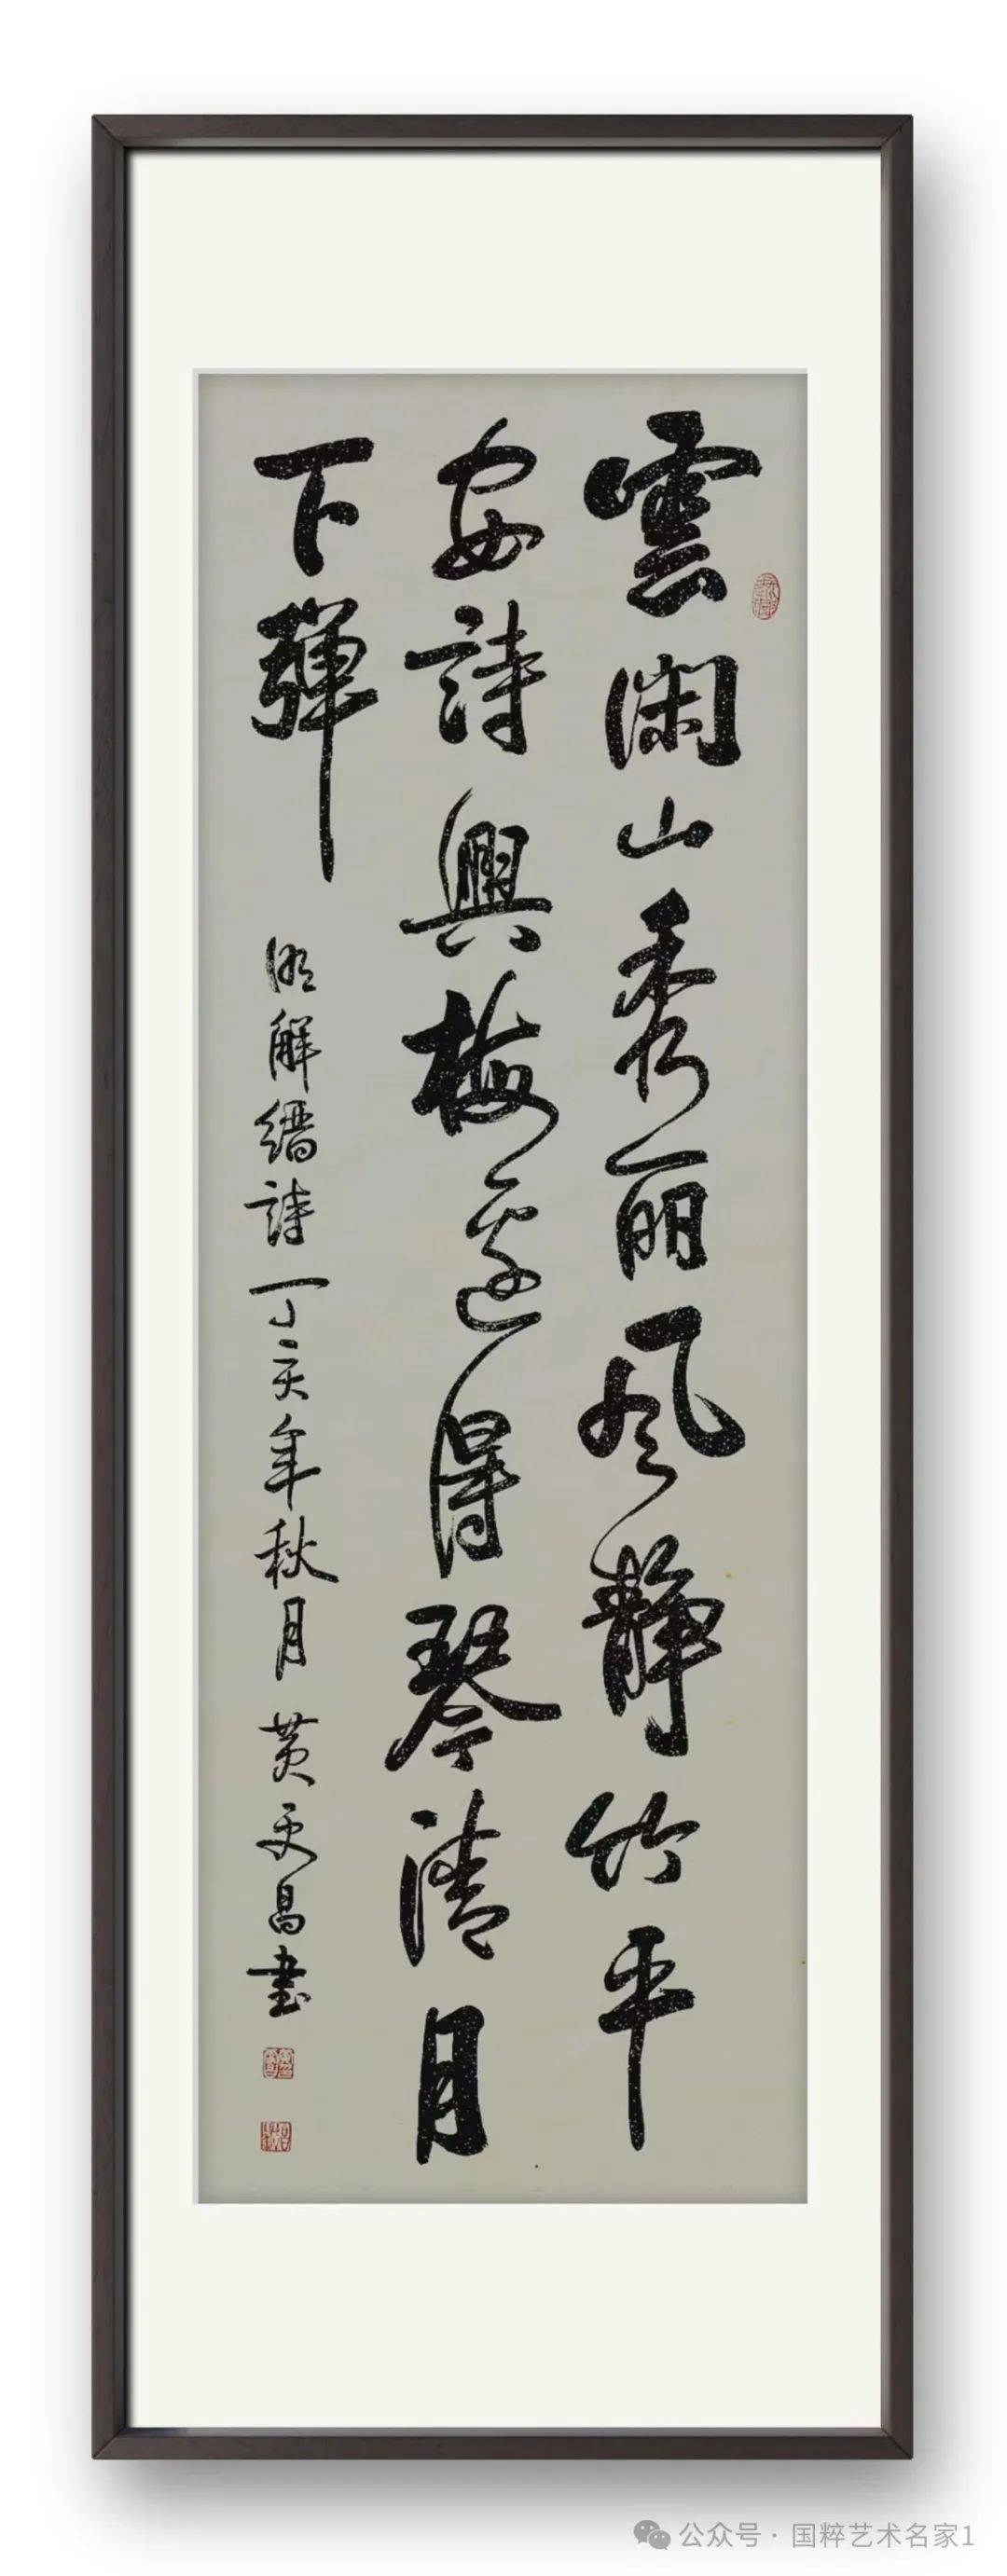 雲闲山秀丽風静竹平
安詩興梅邊得琴清月
下彈
明解縉詩丁亥年秋月黄更昌書
公众号·国粹艺术名家1